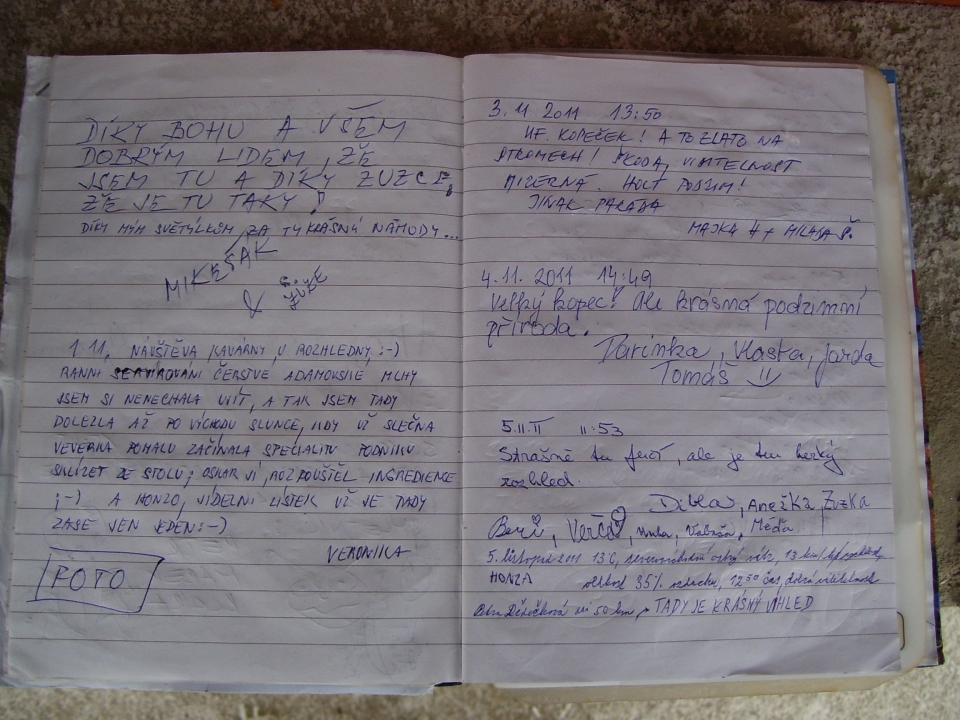 DÍKY BOHU A VŠEM
DOBRÝM LIDEM, ŽE
JSEM TU A DÍKY ZUZCE,
ŽE JE TU TAKY!
DÍKY MÝM SVĚTÝLKŮM ZA TY KRÁSNÝ NÁHODY...
MIKEŠÁK
&
1.11. NÁVŠTĚVA KAVÁRNY U ROZHLEDNY :-)
RANNÍ SERVÍROVÁNÍ ČERSTVÉ ADAMOVSKÉ MLHY
JSEM SI NENECHALA UJÍT, A TAK JSEM TADY
DOLEZLA AŽ PO VÝCHODU SLUNCE, KDY UŽ SLEČNA
VEVERKA POMALU ZAČÍNALA SPECIALITU PODNIKU
SKLÍZET ZE STOLU; OSKAR JÍ ROZPOUŠTĚL INGREDIENCE
;-) A HONZO, JÍDELNÍ LÍSTEK UŽ JE TADY
ZASE JEN JEDEN :-)
VERONIKA
FOTO
3.11 2011 13:50
UF. KOPEČEK! A TO ZLATO NA
STROMECH! ŠKODA, VIDITELNOST
MIZERNÁ. HOLT PODZIM!
JINAK PARÁDA
MAJKA H + Š.
4.11. 2011 14:49
Velký kopec! Ale krásná podzimní
příroda.
Darinka, Vlasta, Jarda
Tomáš
5.11.11 11:53
Strašně tu fučí, ale je tu hezký
rozhled.
Anežka, Zuzka
Verča, Méďa
5. listopad 2011 13°C,
HONZA vlhkost 35% vzduchu, 12:50 čas, dobrá viditelnost
50 km, TADY JE KRÁSNÝ VÝHLED